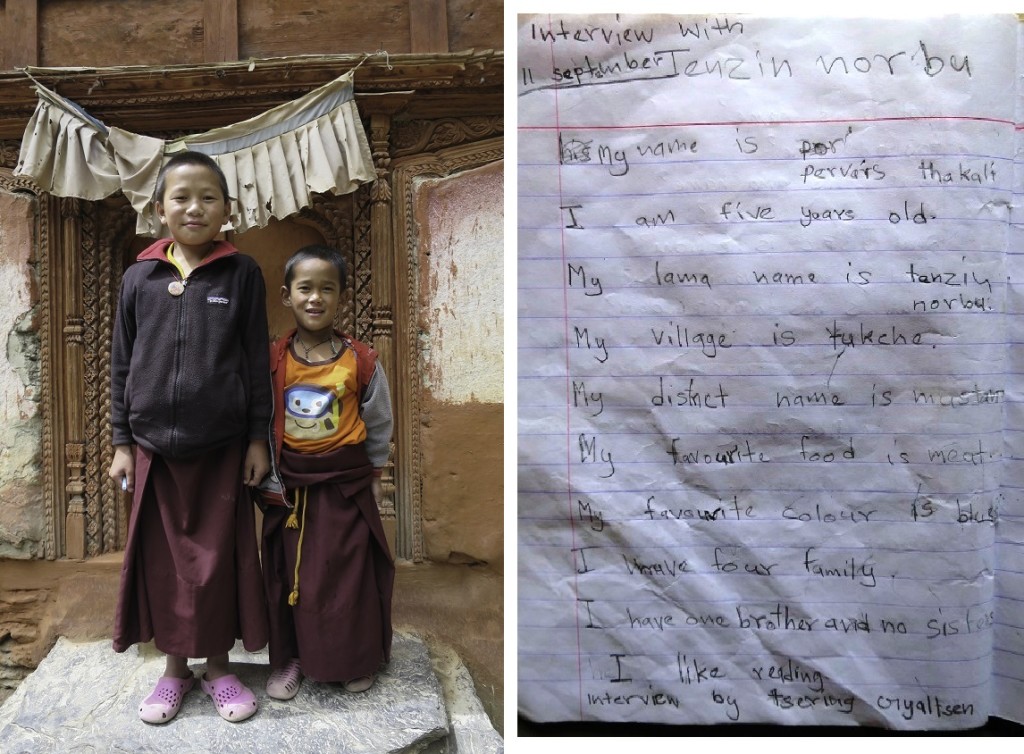 Interview with
11 september Tenzin norbu
My name is por
pervars thakali
I am five years old.
My lama name is tenzin
norbu.
My village is tukche.
My distict name is mustan
My favourite food is meat.
My favourite colour is blue
I have four family.
I have one brother and no sisters
I like reading
interview by tsering Gyaltsen